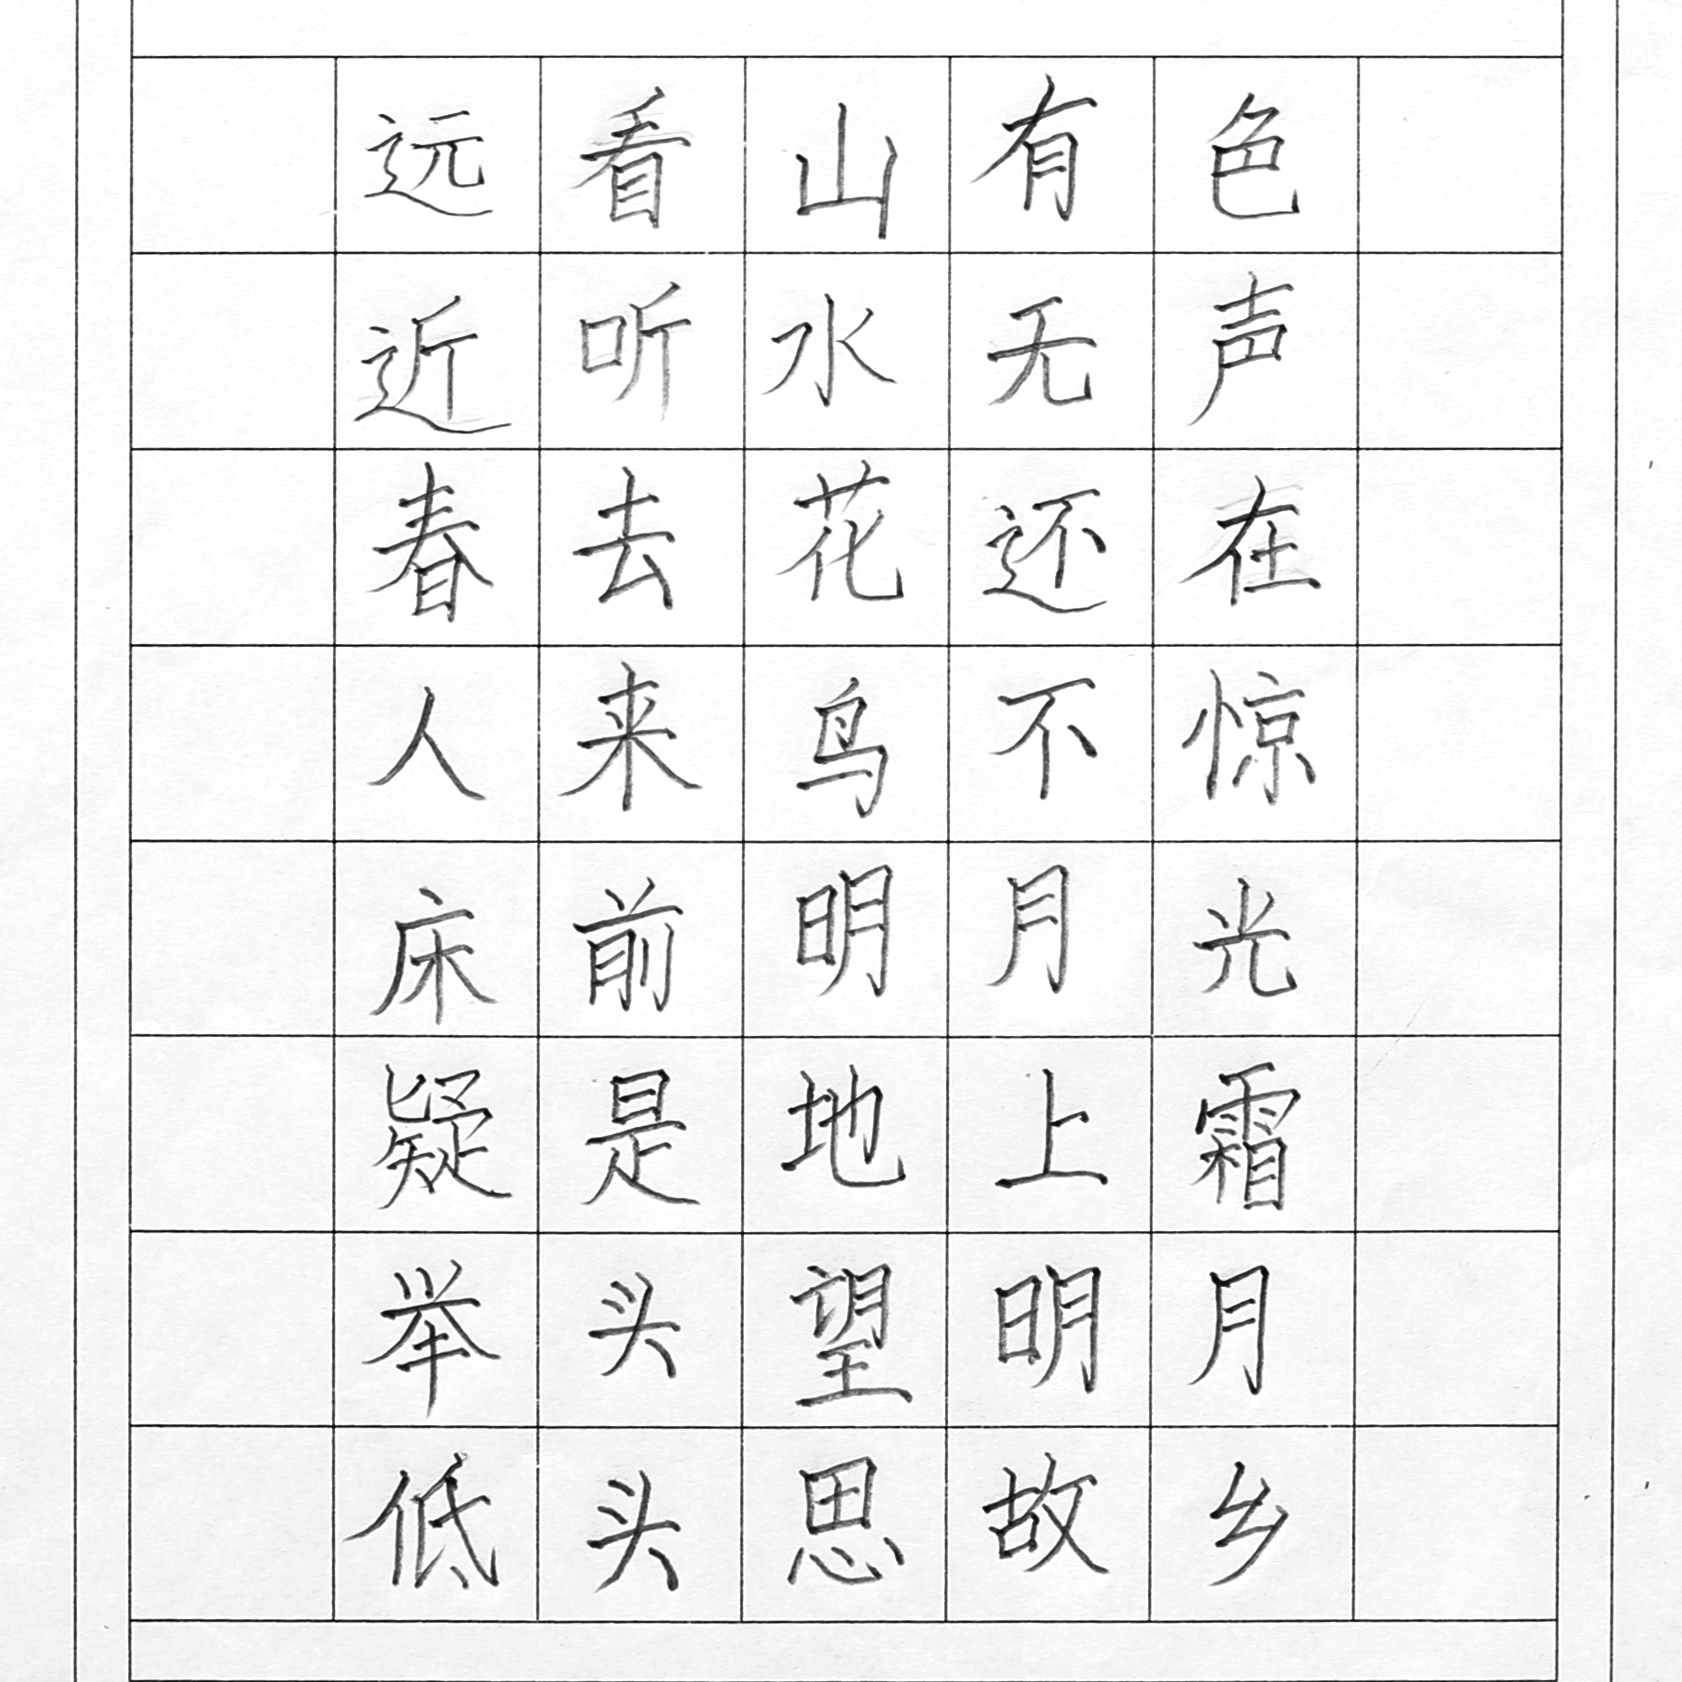 远看山有色
近听水无声
春去花还在
人来鸟不惊
床前明月光
疑是地上霜
举头望明月
低头思故乡